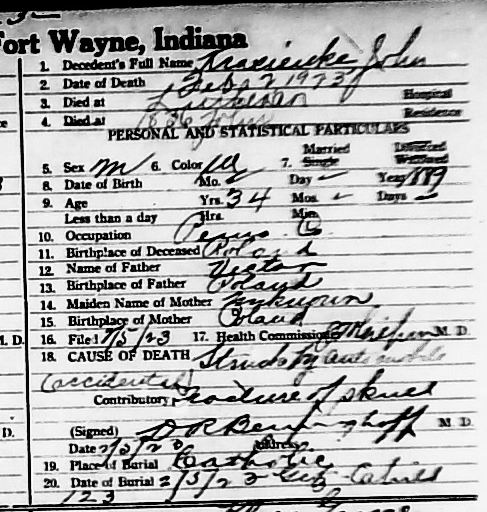 Fort Wayne, Indiana
1. Decedent's Full Name John
2. Date of Death Feb 2 1923
3. Died at Lutheran Hospital
4. Died at 1836 Residence
PERSONAL AND STATISTICAL PARTICULARS
5. Sex M 6. Color W 7. Married Single Divorced Widowed
8. Date of Birth Mo. Day Year 1889
9. Age Yrs. 34 Mos. Days
Less than a day Hrs. Min.
10. Occupation Penna
11. Birthplace of Deceased Poland
12. Name of Father Victor
13. Birthplace of Father Poland
14. Maiden Name of Mother Unknown
15. Birthplace of Mother Poland
M. D. 16. Filed 2/5/23 17. Health Commissioner M. D.
18. CAUSE OF DEATH Struck by automobile
(accidental)
Contributory Fracture of skull
D. (Signed) D R Benninghoff M. D.
Date 2/5/23 Address
19. Place of Burial Catholic
20. Date of Burial 2/5/23
123